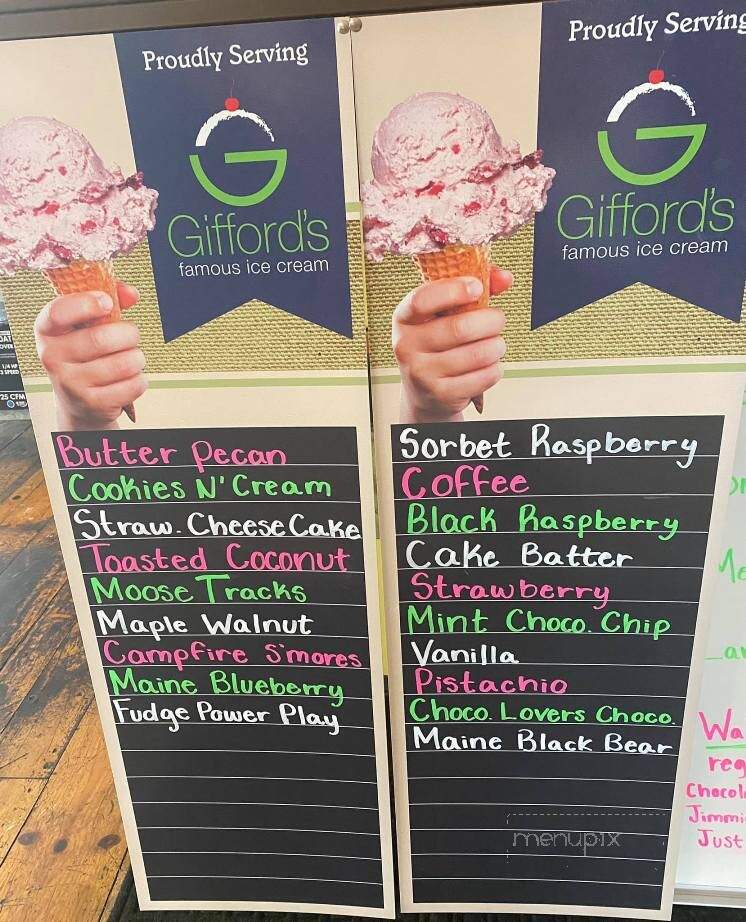 Proudly Serving
Gifford's
famous ice cream
Butter Pecan
Cookies N' Cream
Straw. Cheese Cake
Toasted Coconut
Moose Tracks
Maple Walnut
Campfire S'mores
Maine Blueberry
Fudge Power Play
Proudly Serving
Gifford's
famous ice cream
Sorbet Raspberry
Coffee
Black Raspberry
Cake Batter
Strawberry
Mint Choco. Chip
Vanilla
Pistachio
Choco. Lovers Choco.
Maine Black Bear
menupix
Wa
reg
Chocol
Jimmi
Just
25 CFM